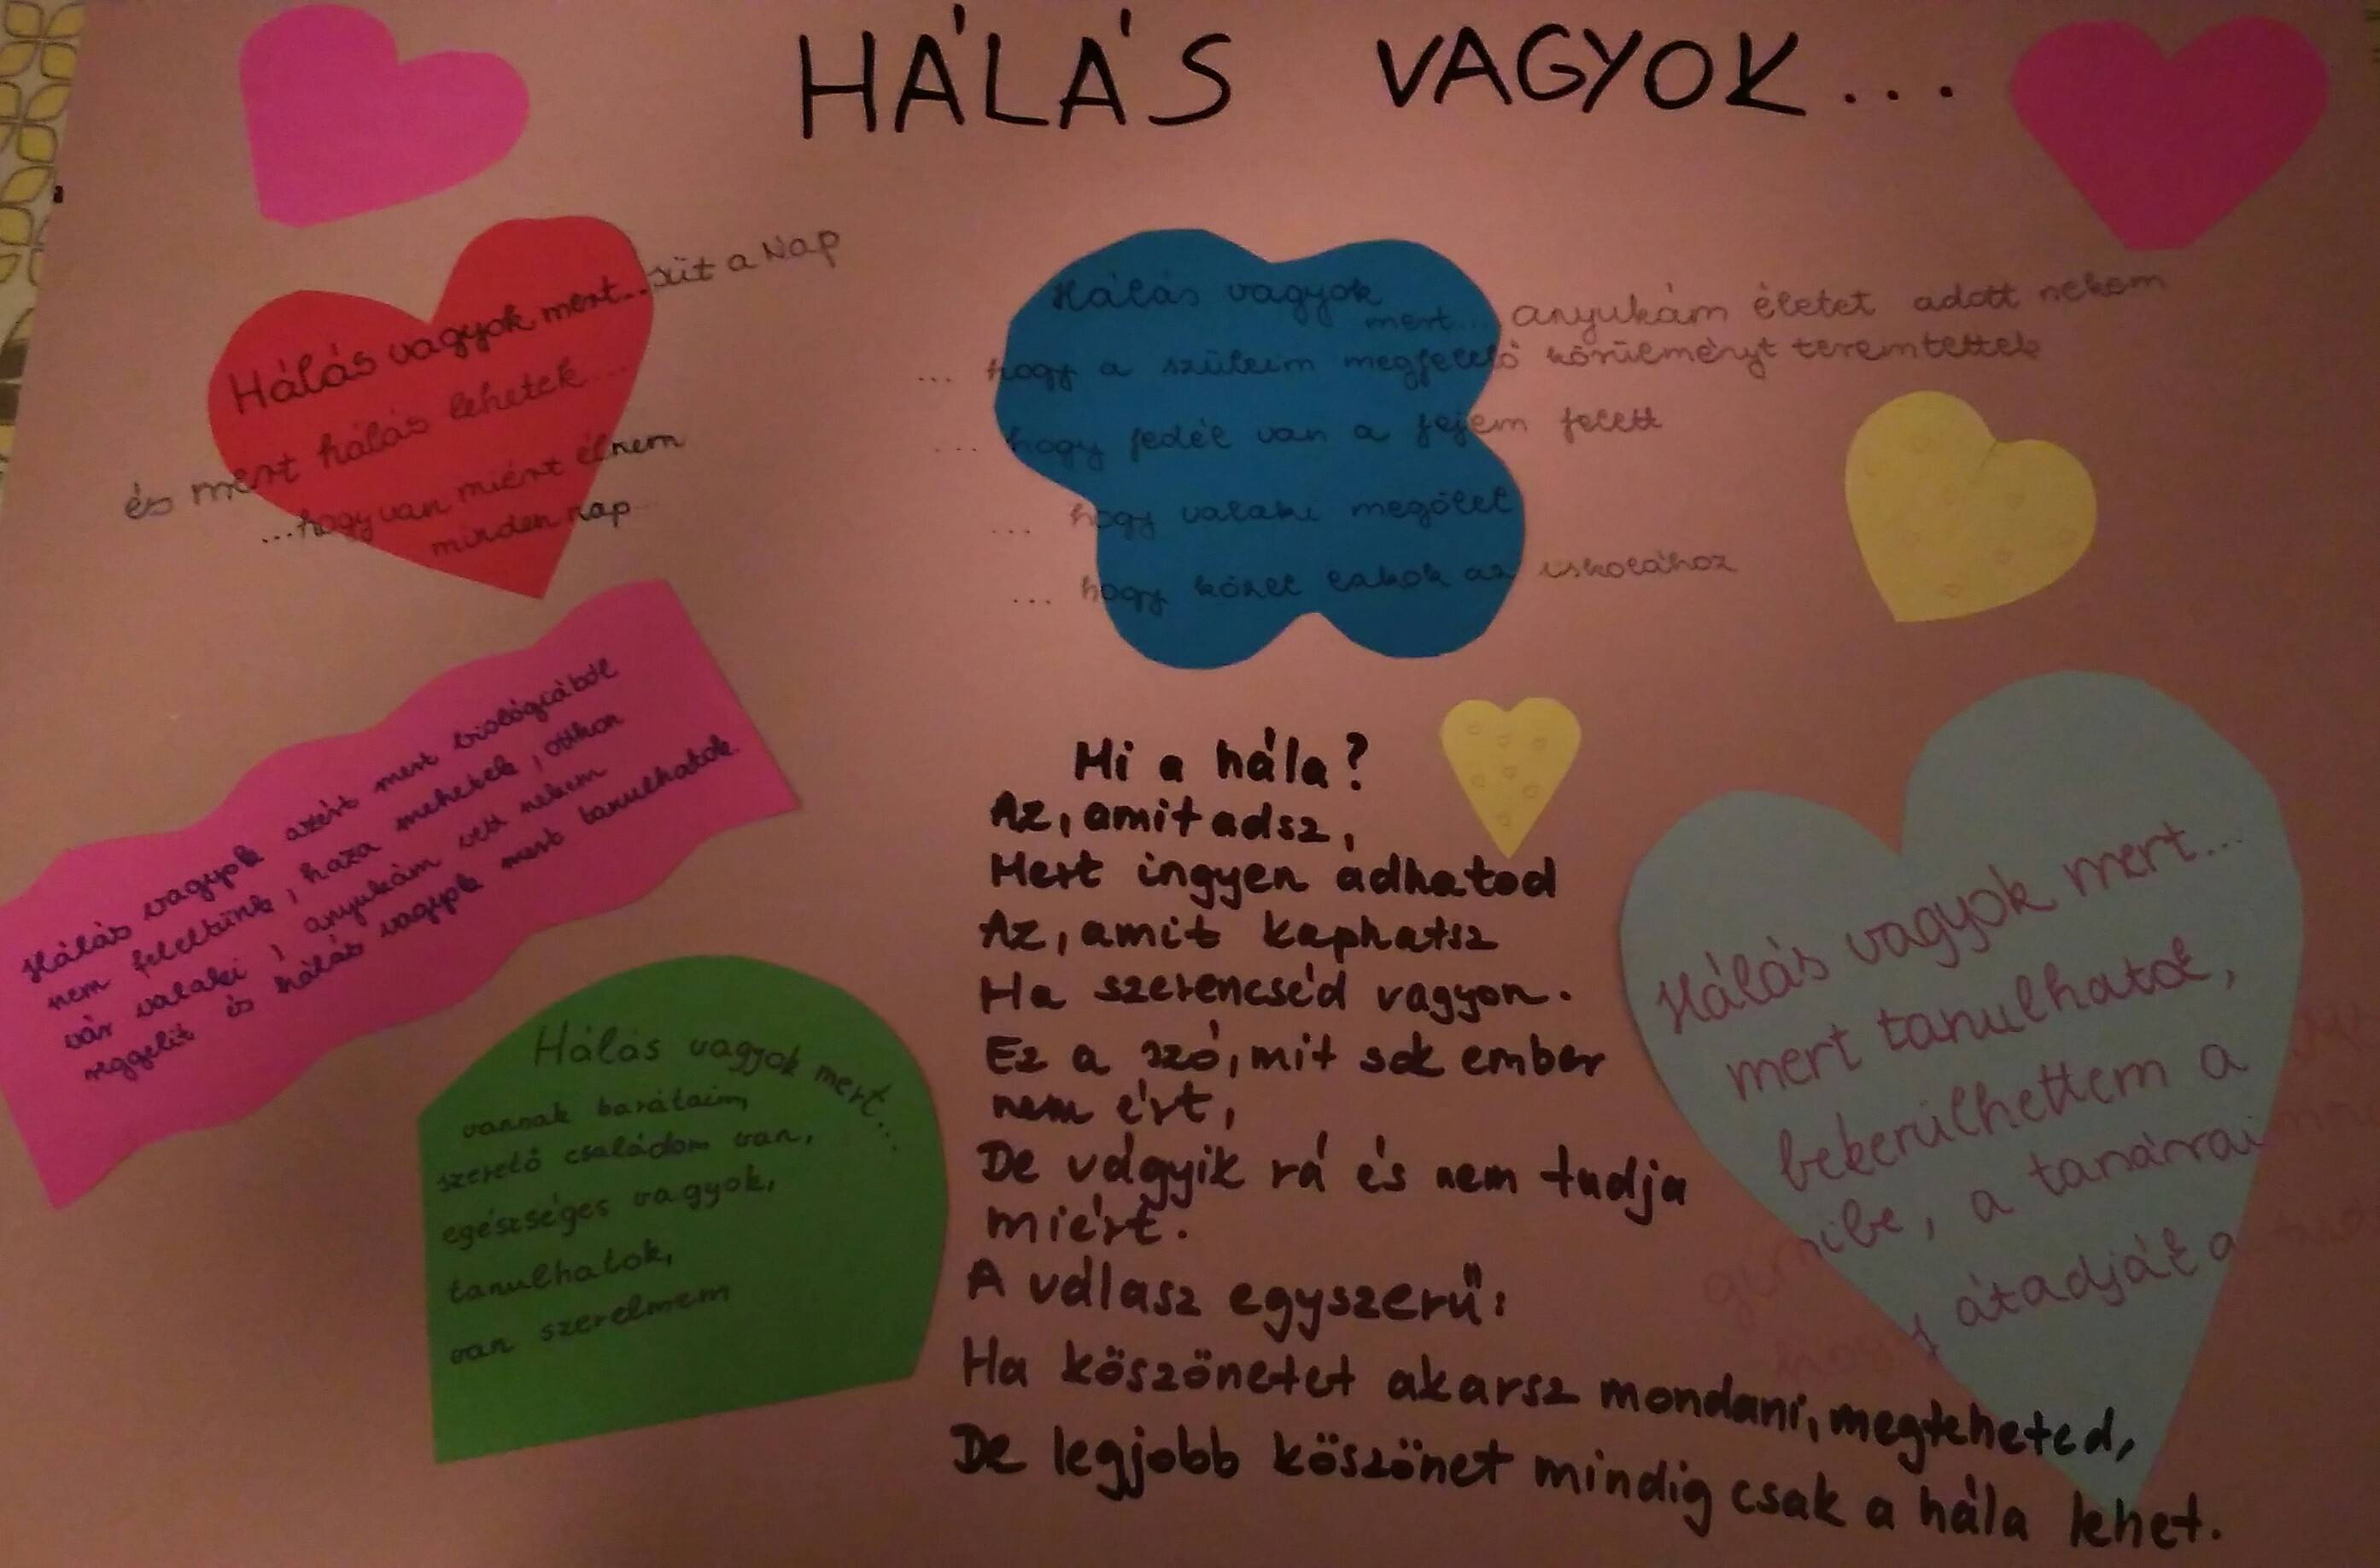 HÁLÁS VAGYOK...
Hálás vagyok mert...süt a Nap
és mert hálás lehetek...
...hogy van miért élnem
minden nap
Hálás vagyok
mert... anyukám életet adott nekem
... hogy a szüleim megfelelő körülményt teremtettek
... hogy fedél van a fejem felett
... hogy valaki megölel
... hogy közel lakok az iskolához
Hálás vagyok azért mert biológiából
nem feleltünk, haza mehetek, otthon
vár valaki, anyukám vett nekem
reggelit és hálás vagyok mert tanulhatok.
Hálás vagyok mert...
vannak barátaim,
szerető családom van,
egészséges vagyok,
tanulhatok,
van szerelmem
Mi a hála?
Az, amit adsz,
Mert ingyen adhatod
Az, amit kaphatsz
Ha szerencséd vagyon.
Ez a szó, mit sok ember
nem ért,
De vágyik rá és nem tudja
miért.
A válasz egyszerű:
Ha köszönetet akarsz mondani, megteheted,
De legjobb köszönet mindig csak a hála lehet.
Hálás vagyok mert...
mert tanulhatok,
bekerülhettem a
gimibe, a tanárrai
hogy átadják a